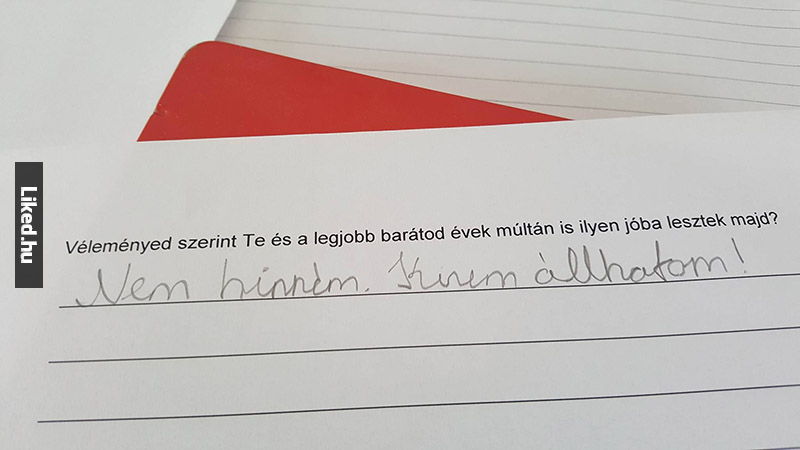 Liked.hu
Véleményed szerint Te és a legjobb barátod évek múltán is ilyen jóba lesztek majd?
Nem hinném. Kinem állhatom!